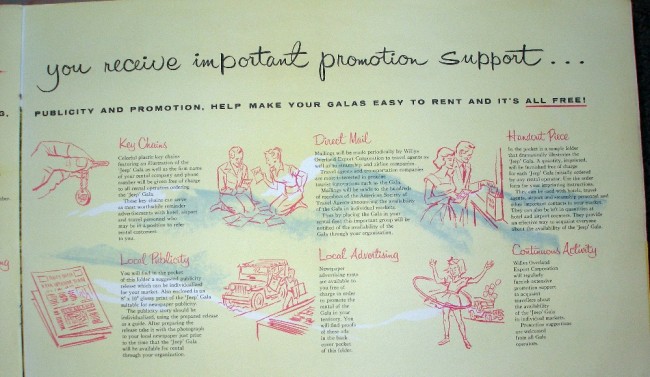 you receive important promotion support...
PUBLICITY AND PROMOTION, HELP MAKE YOUR GALAS EASY TO RENT AND IT'S ALL FREE!
Key Chains
Colorful plastic key chains
featuring an illustration of the
'Jeep' Gala as well as the firm name
of your rental company and phone
number will be given free of charge
to all rental operators ordering
the 'Jeep' Gala.
These key chains can serve
as most worthwhile reminder
advertisements with hotel, airport
and travel personnel who
may be in a position to refer
rental customers
to you.
Direct Mail
Mailings will be made periodically by Willys
Overland Export Corporation to travel agents as
well as steamship and airline companies.
Travel agents and transportation companies
are most interested in genuine
tourist innovations such as the Gala.
Mailings will be made to the hundreds
of members of the American Society of
Travel Agents announcing the availability
of the Gala in individual markets.
Thus by placing the Gala in your
rental fleet this important group will be
notified of the availability of the
Gala through your organization.
Handout Piece
In the pocket is a sample folder
that dramatically illustrates the
'Jeep' Gala. A quantity, imprinted,
will be furnished free of charge
for each 'Jeep' Gala initially ordered
by any rental operator. Use the order
form for your imprinting instructions.
This can be used with hotels, travel
agents, airport and steamship personnel and
other important contacts in your market.
They can also be left in quantities at
hotel and airport counters. They provide
an effective way to acquaint everyone
about the availability of the Gala.
Local Publicity
You will find in the pocket
of this folder a suggested publicity
release which can be individualized
for your market. Also enclosed is an
8" x 10" glossy print of the 'Jeep' Gala
suitable for newspaper publicity.
The publicity story should be
individualized, using the prepared release
as a guide. After preparing the
release take it with the photograph
to your local newspaper just prior
to the time that the 'Jeep' Gala
will be available for rental
through your organization.
Local Advertising
Newspaper
advertising mats
are available to
you free of
charge in order
to promote the
rental of the
Gala in your
territory. You
will find proofs
of these ads
in the back
cover pocket
of this folder.
Continuous Activity
Willys Overland
Export Corporation
will regularly
furnish extensive
promotion support
to acquaint
travellers about
the availability
of the 'Jeep' Gala
in individual markets.
Promotion suggestions
are welcomed
from all Gala
operators.